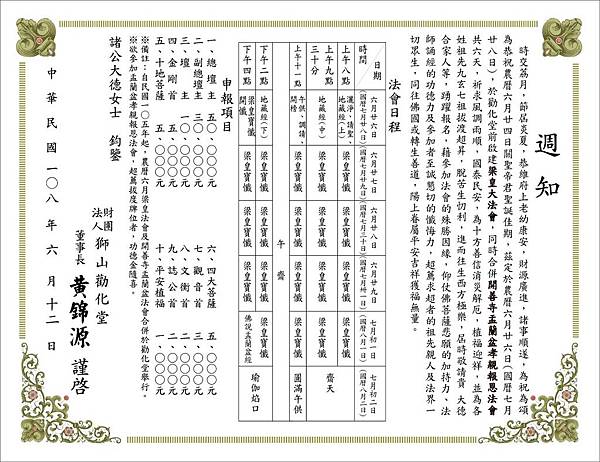 週知
時交荔月，節屆炎夏，恭維府上老幼康安，財源廣進，諸事順遂，為祝為頌
為恭祝農曆六月廿四日關聖帝君聖誕佳期，茲定於農曆六月廿六日（國曆七月
廿八日），於勸化堂前啟建梁皇大法會，同時合併開善寺盂蘭盆孝親報恩法會
共六天，祈求風調雨順，國泰民安，為十方善信消災解厄，植福迎祥，並為各
姓祖先九玄七祖拔渡超昇，脫苦生忉利，進而往生西方極樂，屆時敬請貴 大德
合家人等，踴躍報名，藉參加法會的殊勝因緣，仰仗佛菩薩悲願的加持力、法
師誦經的功德力及參加者至誠懇切的懺悔力，超薦求超者的祖先親人及法界一
切眾生，同往佛國或轉生善道，陽上眷屬平安吉祥獲福無量。
法會日程
日期 時間
六月廿六日（國曆七月廿八日）
六月廿七日（國曆七月廿九日）
六月廿八日（國曆七月二十日）
六月廿九日（國曆七月卅一日）
七月初一日（國曆八月一日）
七月初二日（國曆八月二日）
上午八點 灑淨、請聖、地藏經（上） 梁皇寶懺 梁皇寶懺 梁皇寶懺 梁皇寶懺
上午九點三十分 地藏經（中） 梁皇寶懺 梁皇寶懺 梁皇寶懺 梁皇寶懺 齋天
上午十一點 午供、調請、開榜 午齋 圓滿午供
下午二點 地藏經（下） 梁皇寶懺 梁皇寶懺 梁皇寶懺 梁皇寶懺
下午四點 梁皇寶懺開懺 梁皇寶懺 梁皇寶懺 梁皇寶懺 佛說盂蘭盆經 瑜伽焰口
申報項目
一、總壇主 五〇、〇〇〇元 六、四大菩薩 五、〇〇〇元
二、副總壇主 三〇、〇〇〇元 七、觀音首 三、〇〇〇元
三、壇主 一〇、〇〇〇元 八、文衡首 三、〇〇〇元
四、金剛首 五、〇〇〇元 九、誌公首 二、〇〇〇元
五、十地菩薩 五、〇〇〇元 十、平安植福 一、〇〇〇元
※備註：自民國一〇五年起，農曆六月梁皇法會及開善寺盂蘭盆法會合併於勸化堂舉行。
※欲參加盂蘭盆孝親報恩法會，超薦拔度牌位者，功德金隨喜。
諸公大德女士 鈞鑒
財團法人獅山勸化堂
董事長 黃錦源 謹啓
中華民國一〇八年六月十二日